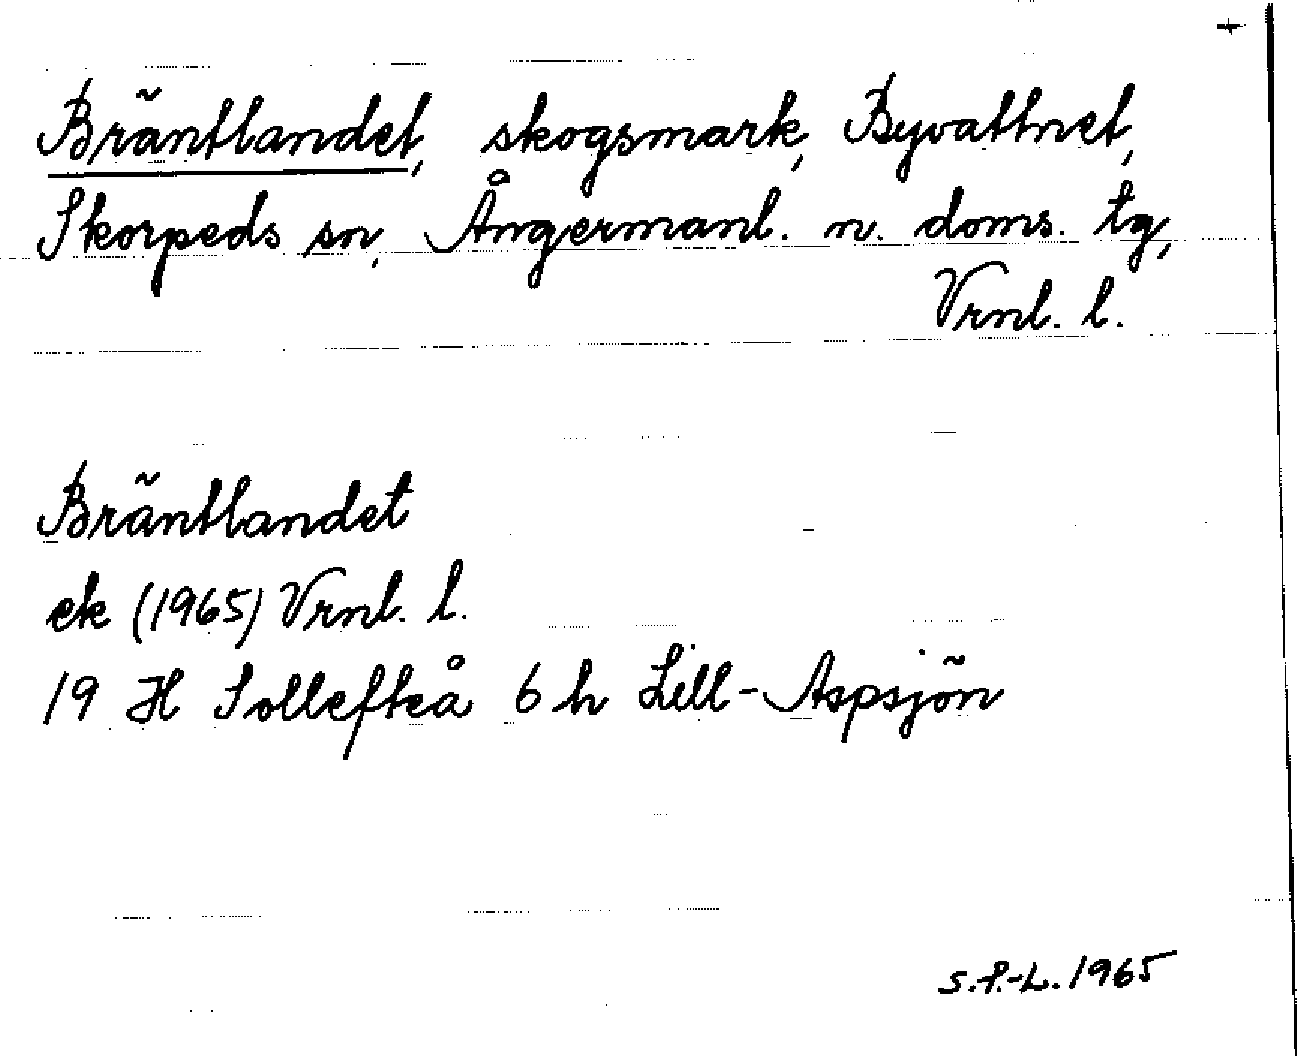 +
Bräntlandet, skogsmark, Byvattnet,
Skorpeds sn, Ångermanl. n. doms. tg,
Vrnl. l.
Bräntlandet
ek (1965) Vrnl. l.
19 H Sollefteå 6 h Lill-Aspsjön
S.P.-L. 1965